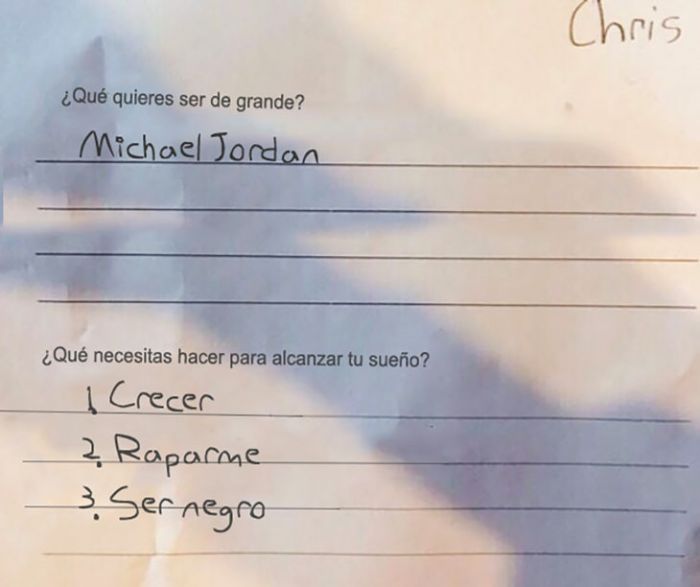 Chris
¿Qué quieres ser de grande?
Michael Jordan
¿Qué necesitas hacer para alcanzar tu sueño?
1. Crecer
2. Raparme
3. Ser negro